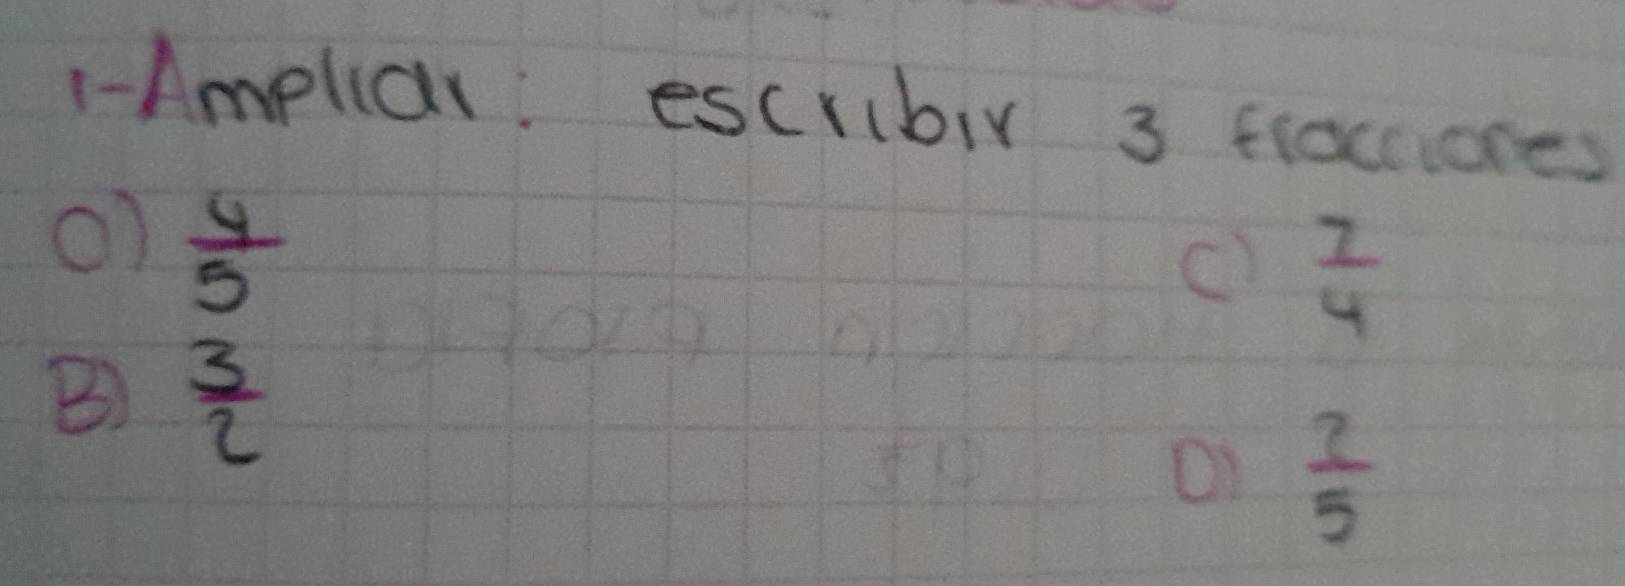 1-Ampliar: escribir 3 fracciones
a) 4/5
B) 3/2
C) 7/4
D) 2/5